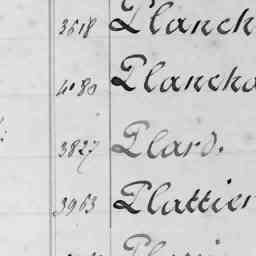 3618 Planch
4080 Plancha
3827 Plard.
3963 Plattier